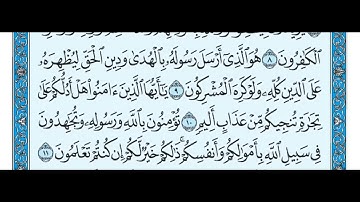 ٱلْكَٰفِرُونَ ٨ هُوَ ٱلَّذِىٓ أَرْسَلَ رَسُولَهُۥ بِٱلْهُدَىٰ وَدِينِ ٱلْحَقِّ لِيُظْهِرَهُۥ
عَلَى ٱلدِّينِ كُلِّهِۦ وَلَوْ كَرِهَ ٱلْمُشْرِكُونَ ٩ يَٰٓأَيُّهَا ٱلَّذِينَ ءَامَنُوا۟ هَلْ أَدُلُّكُمْ عَلَىٰ
تِجَٰرَةٍ تُنجِيكُم مِّنْ عَذَابٍ أَلِيمٍ ١٠ تُؤْمِنُونَ بِٱللَّهِ وَرَسُولِهِۦ وَتُجَٰهِدُونَ
فِى سَبِيلِ ٱللَّهِ بِأَمْوَٰلِكُمْ وَأَنفُسِكُمْ ۚ ذَٰلِكُمْ خَيْرٌ لَّكُمْ إِن كُنتُمْ تَعْلَمُونَ ١١